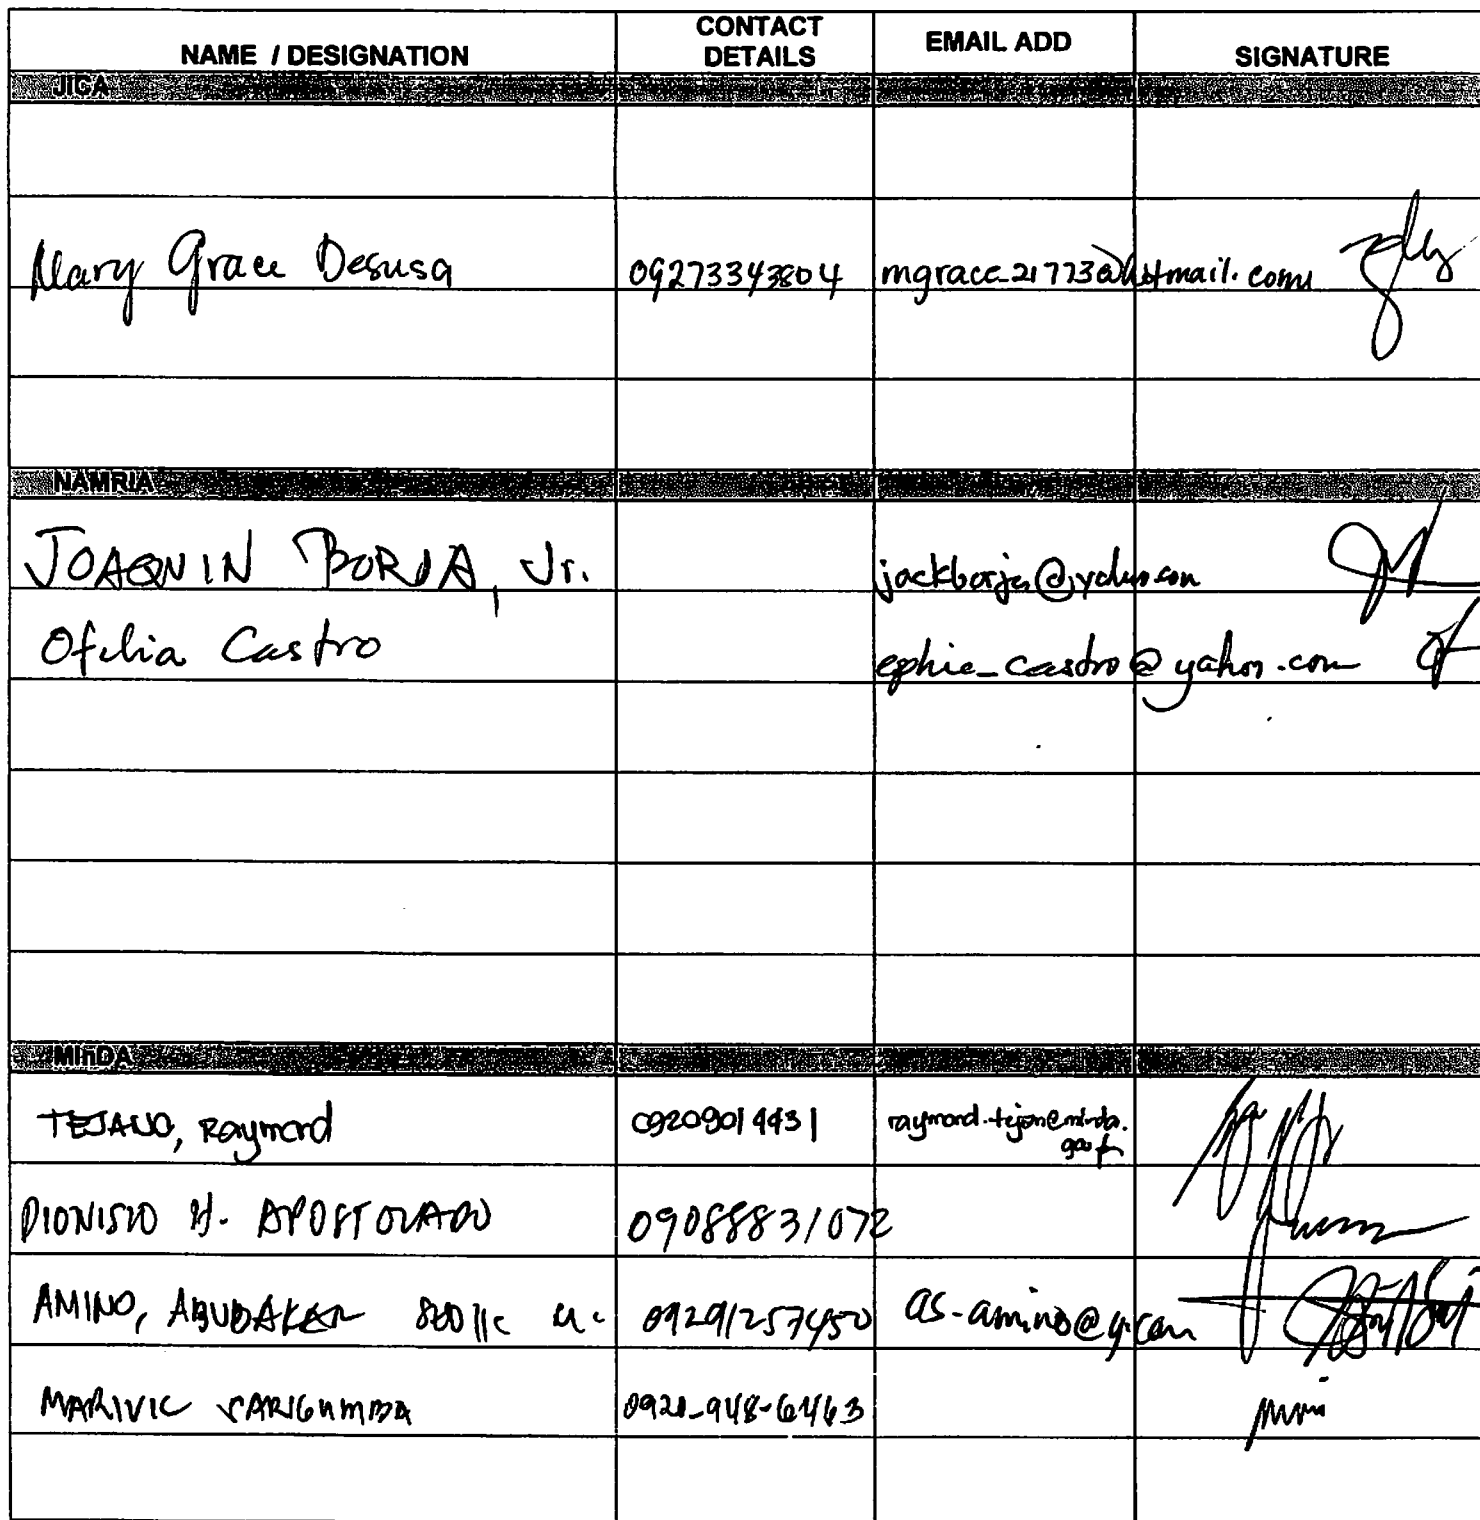 NAME / DESIGNATION CONTACT DETAILS EMAIL ADD SIGNATURE
JICA
Mary Grace Desusa 09273343804 mgrace_21773@hotmail.com
NAMRIA
JOAQUIN BORJA, Jr. jackborja@yahoo.com
Ofelia Castro ephie_castro@yahoo.com
MinDA
TEJANO, Raymond 09209014431 raymond.tejano@minda.
DIONISIO H. APOSTOLADO 09088831072
AMINO, ABUBAKAR 09291257450 as-amino@y.com
MARIVIC SARIGUMBA 0920-948-6463